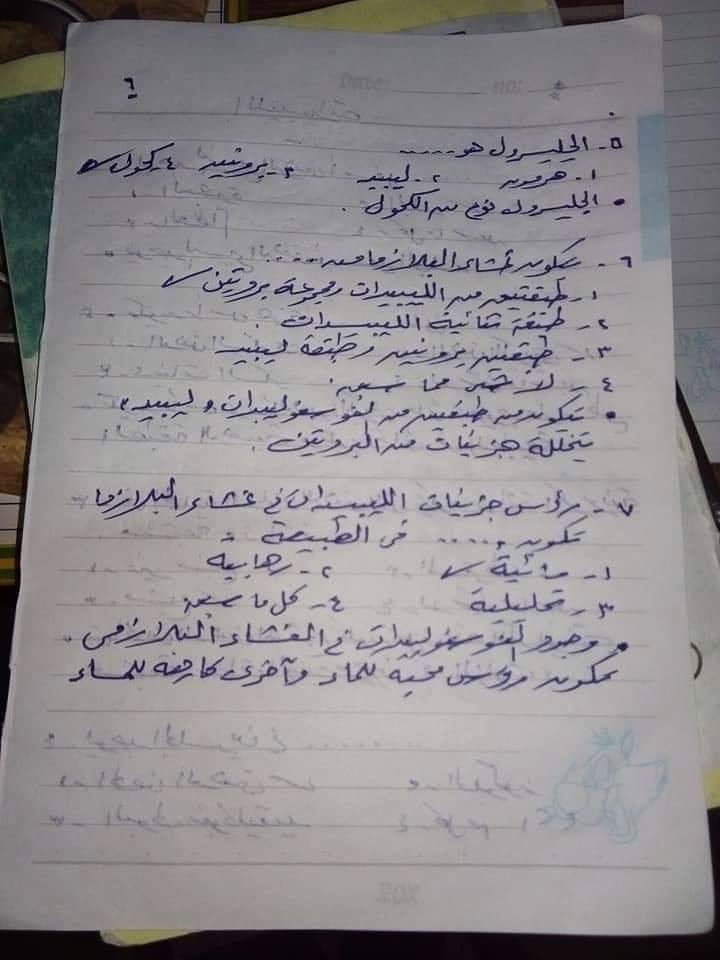 Date: no:
٦
٥- الجليسرول هو .....
١- هرمون ٢- ليبيد ٣- بروتين ٤- كحول
• الجليسرول نوع من الكحول .
٦- يتكون غشاء البلازما من .....
١- طبقتين من الليبيدات ومجموعة بروتين
٢- طبقة ثنائية الليبيدات .
٣- طبقتين بروتين وطبقة ليبيد
٤- لا شئ مما سبق .
• يتكون من طبقتين من لفوسفوليبدات "ليبيد"
يتخللة جزيئات من البروتين .
٧- رؤس جزيئات الليبيدات في غشاء البلازما
تكون ..... في الطبيعة :
١- مائية ٢- رهابيه
٣- تحليلية ٤- كل ما سبق
• وجدو الفوسفوليبدات في الغشاء البلازمى
يكون رؤس محبه للماء وآخرى كارهه للماء